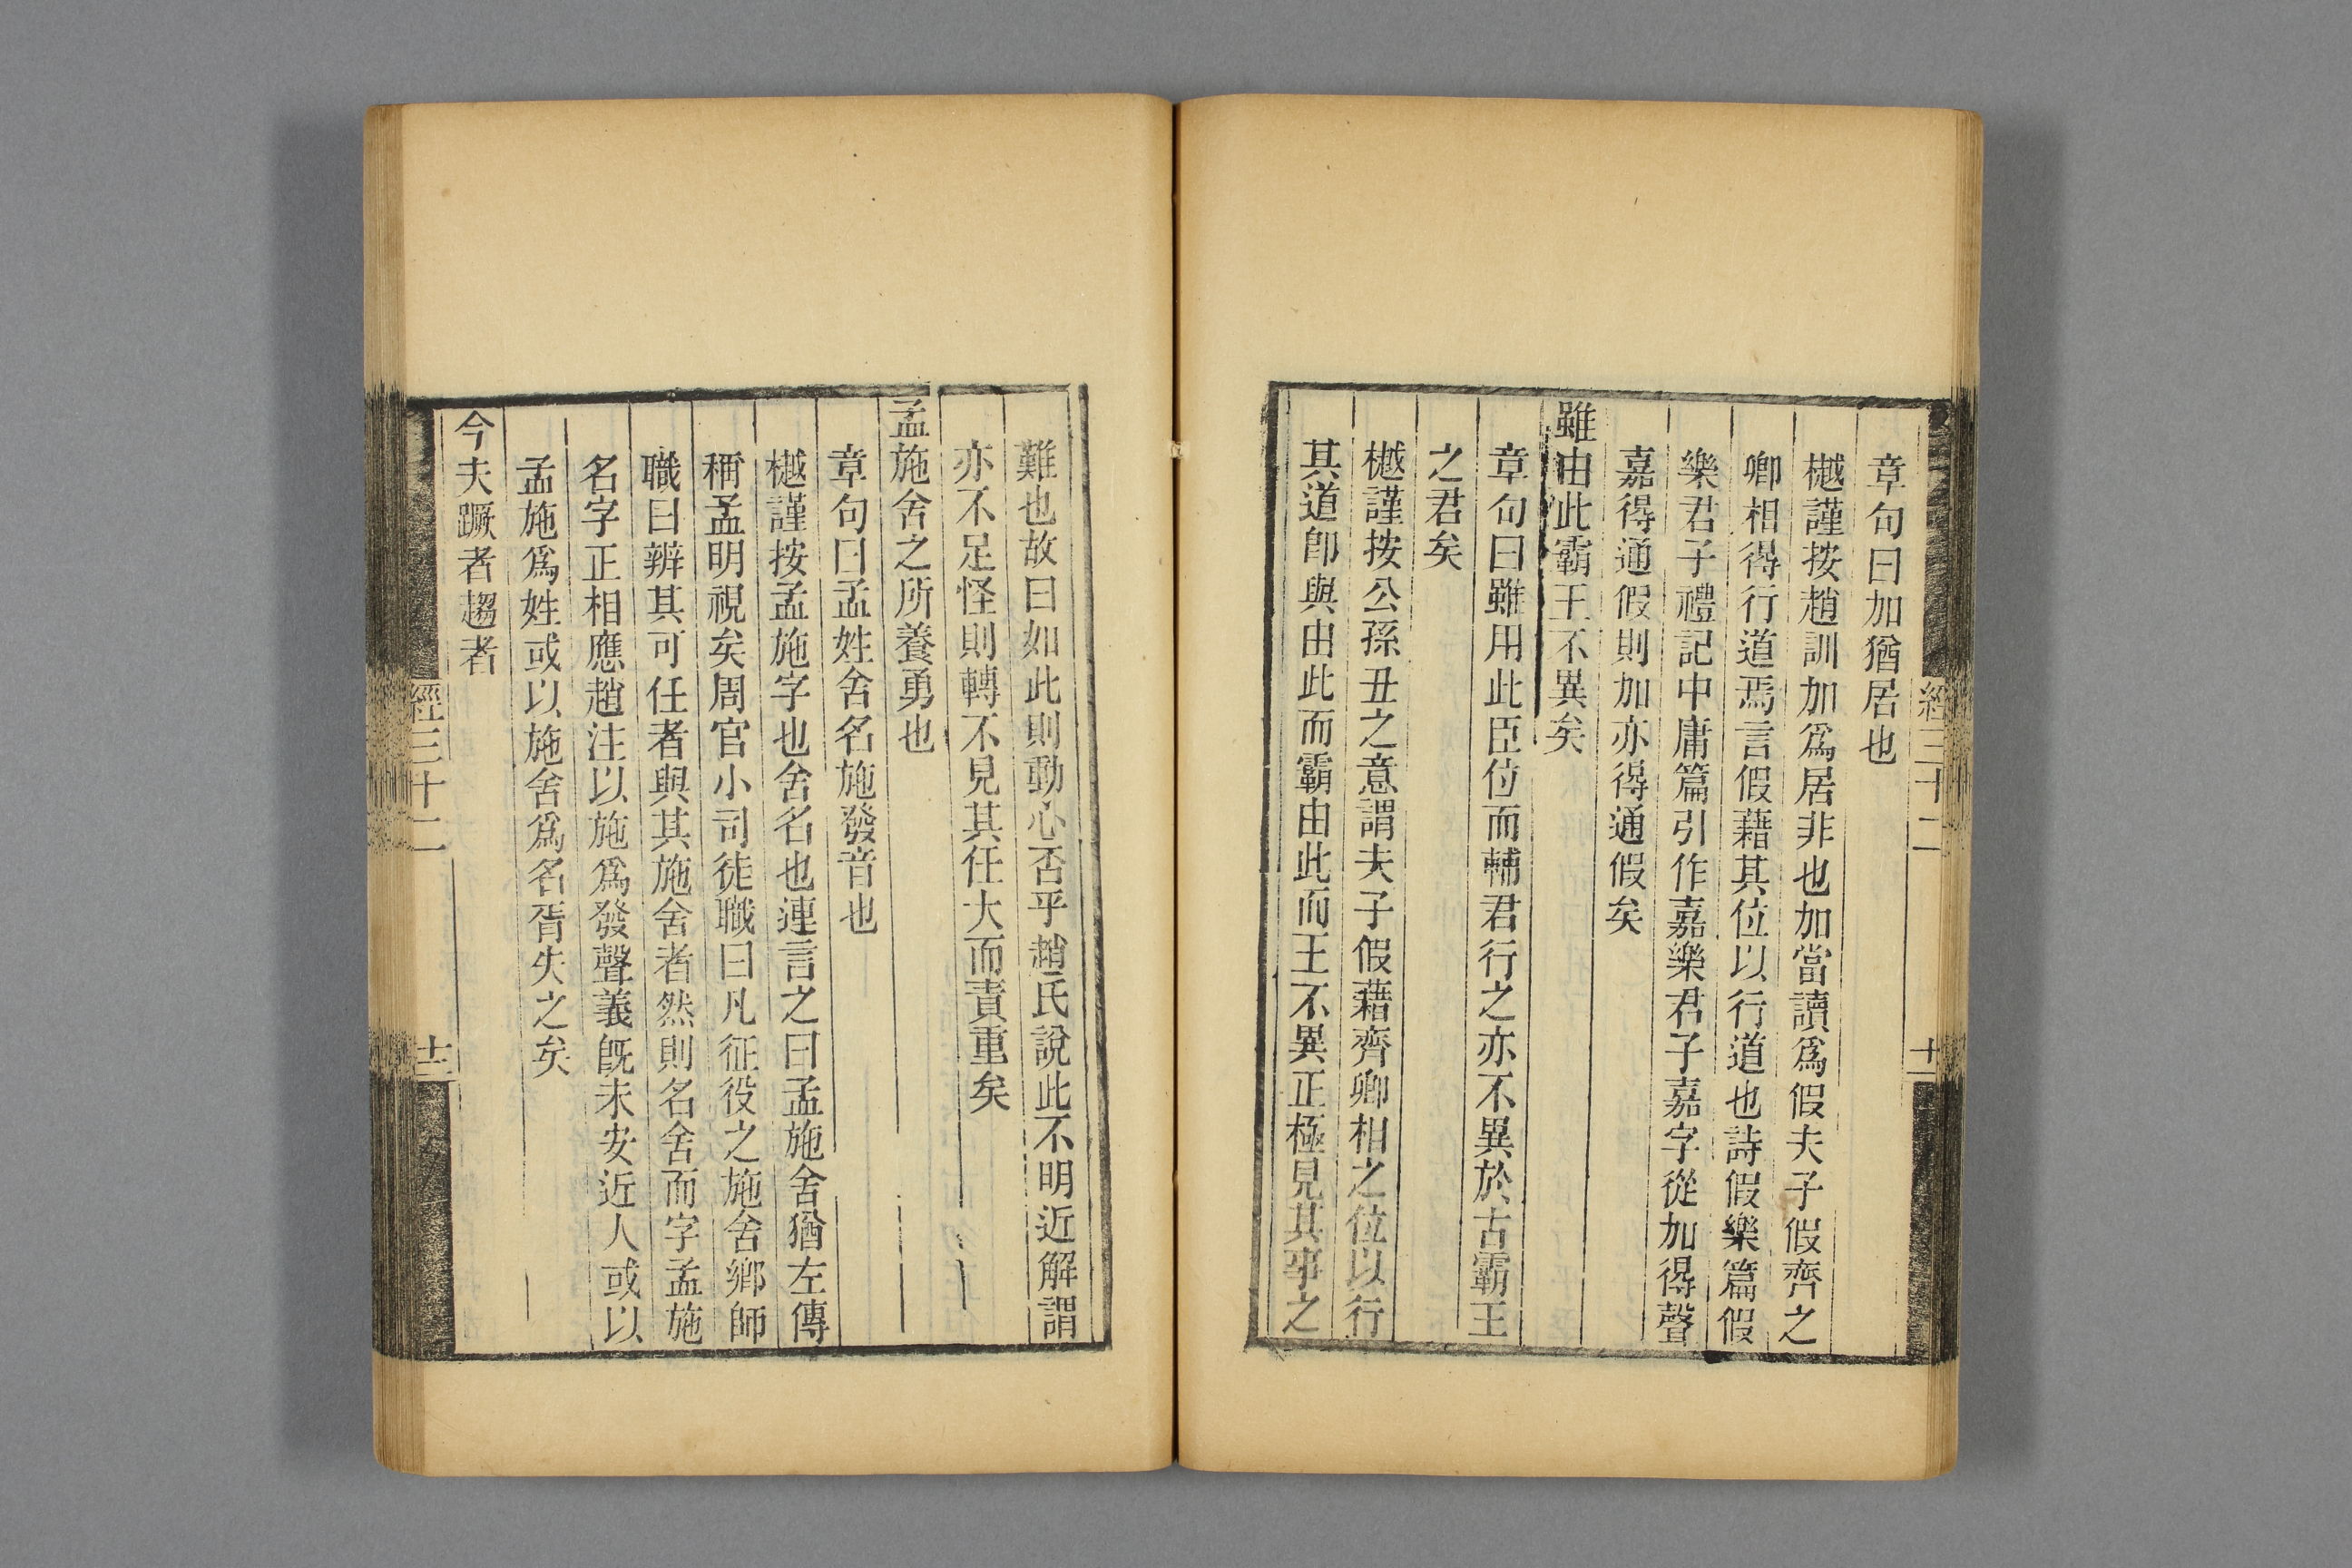 章句曰加猶居也
樾謹按趙訓加爲居非也加當讀爲假夫子假齊之
卿相得行道焉言假藉其位以行道也詩假樂篇假
樂君子禮記中庸篇引作嘉樂君子嘉字從加得聲
嘉得通假則加亦得通假矣
雖由此霸王不異矣
章句曰雖用此臣位而輔君行之亦不異於古霸王
之君矣
樾謹按公孫丑之意謂夫子假藉齊卿相之位以行
其道卽與由此而霸由此而王不異正極見其事之
經三十二
十一
難也故曰如此則動心否乎趙氏說此不明近解謂
亦不足怪則轉不見其任大而責重矣
孟施舍之所養勇也
章句曰孟姓舍名施發音也
樾謹按孟施字也舍名也連言之曰孟施舍猶左傳
稱孟明視矣周官小司徒職曰凡征役之施舍鄉師
職曰辨其可任者與其施舍者然則名舍而字孟施
名字正相應趙注以施爲發聲義旣未安近人或以
孟施爲姓或以施舍爲名胥失之矣
今夫蹶者趨者
經三十二
十二